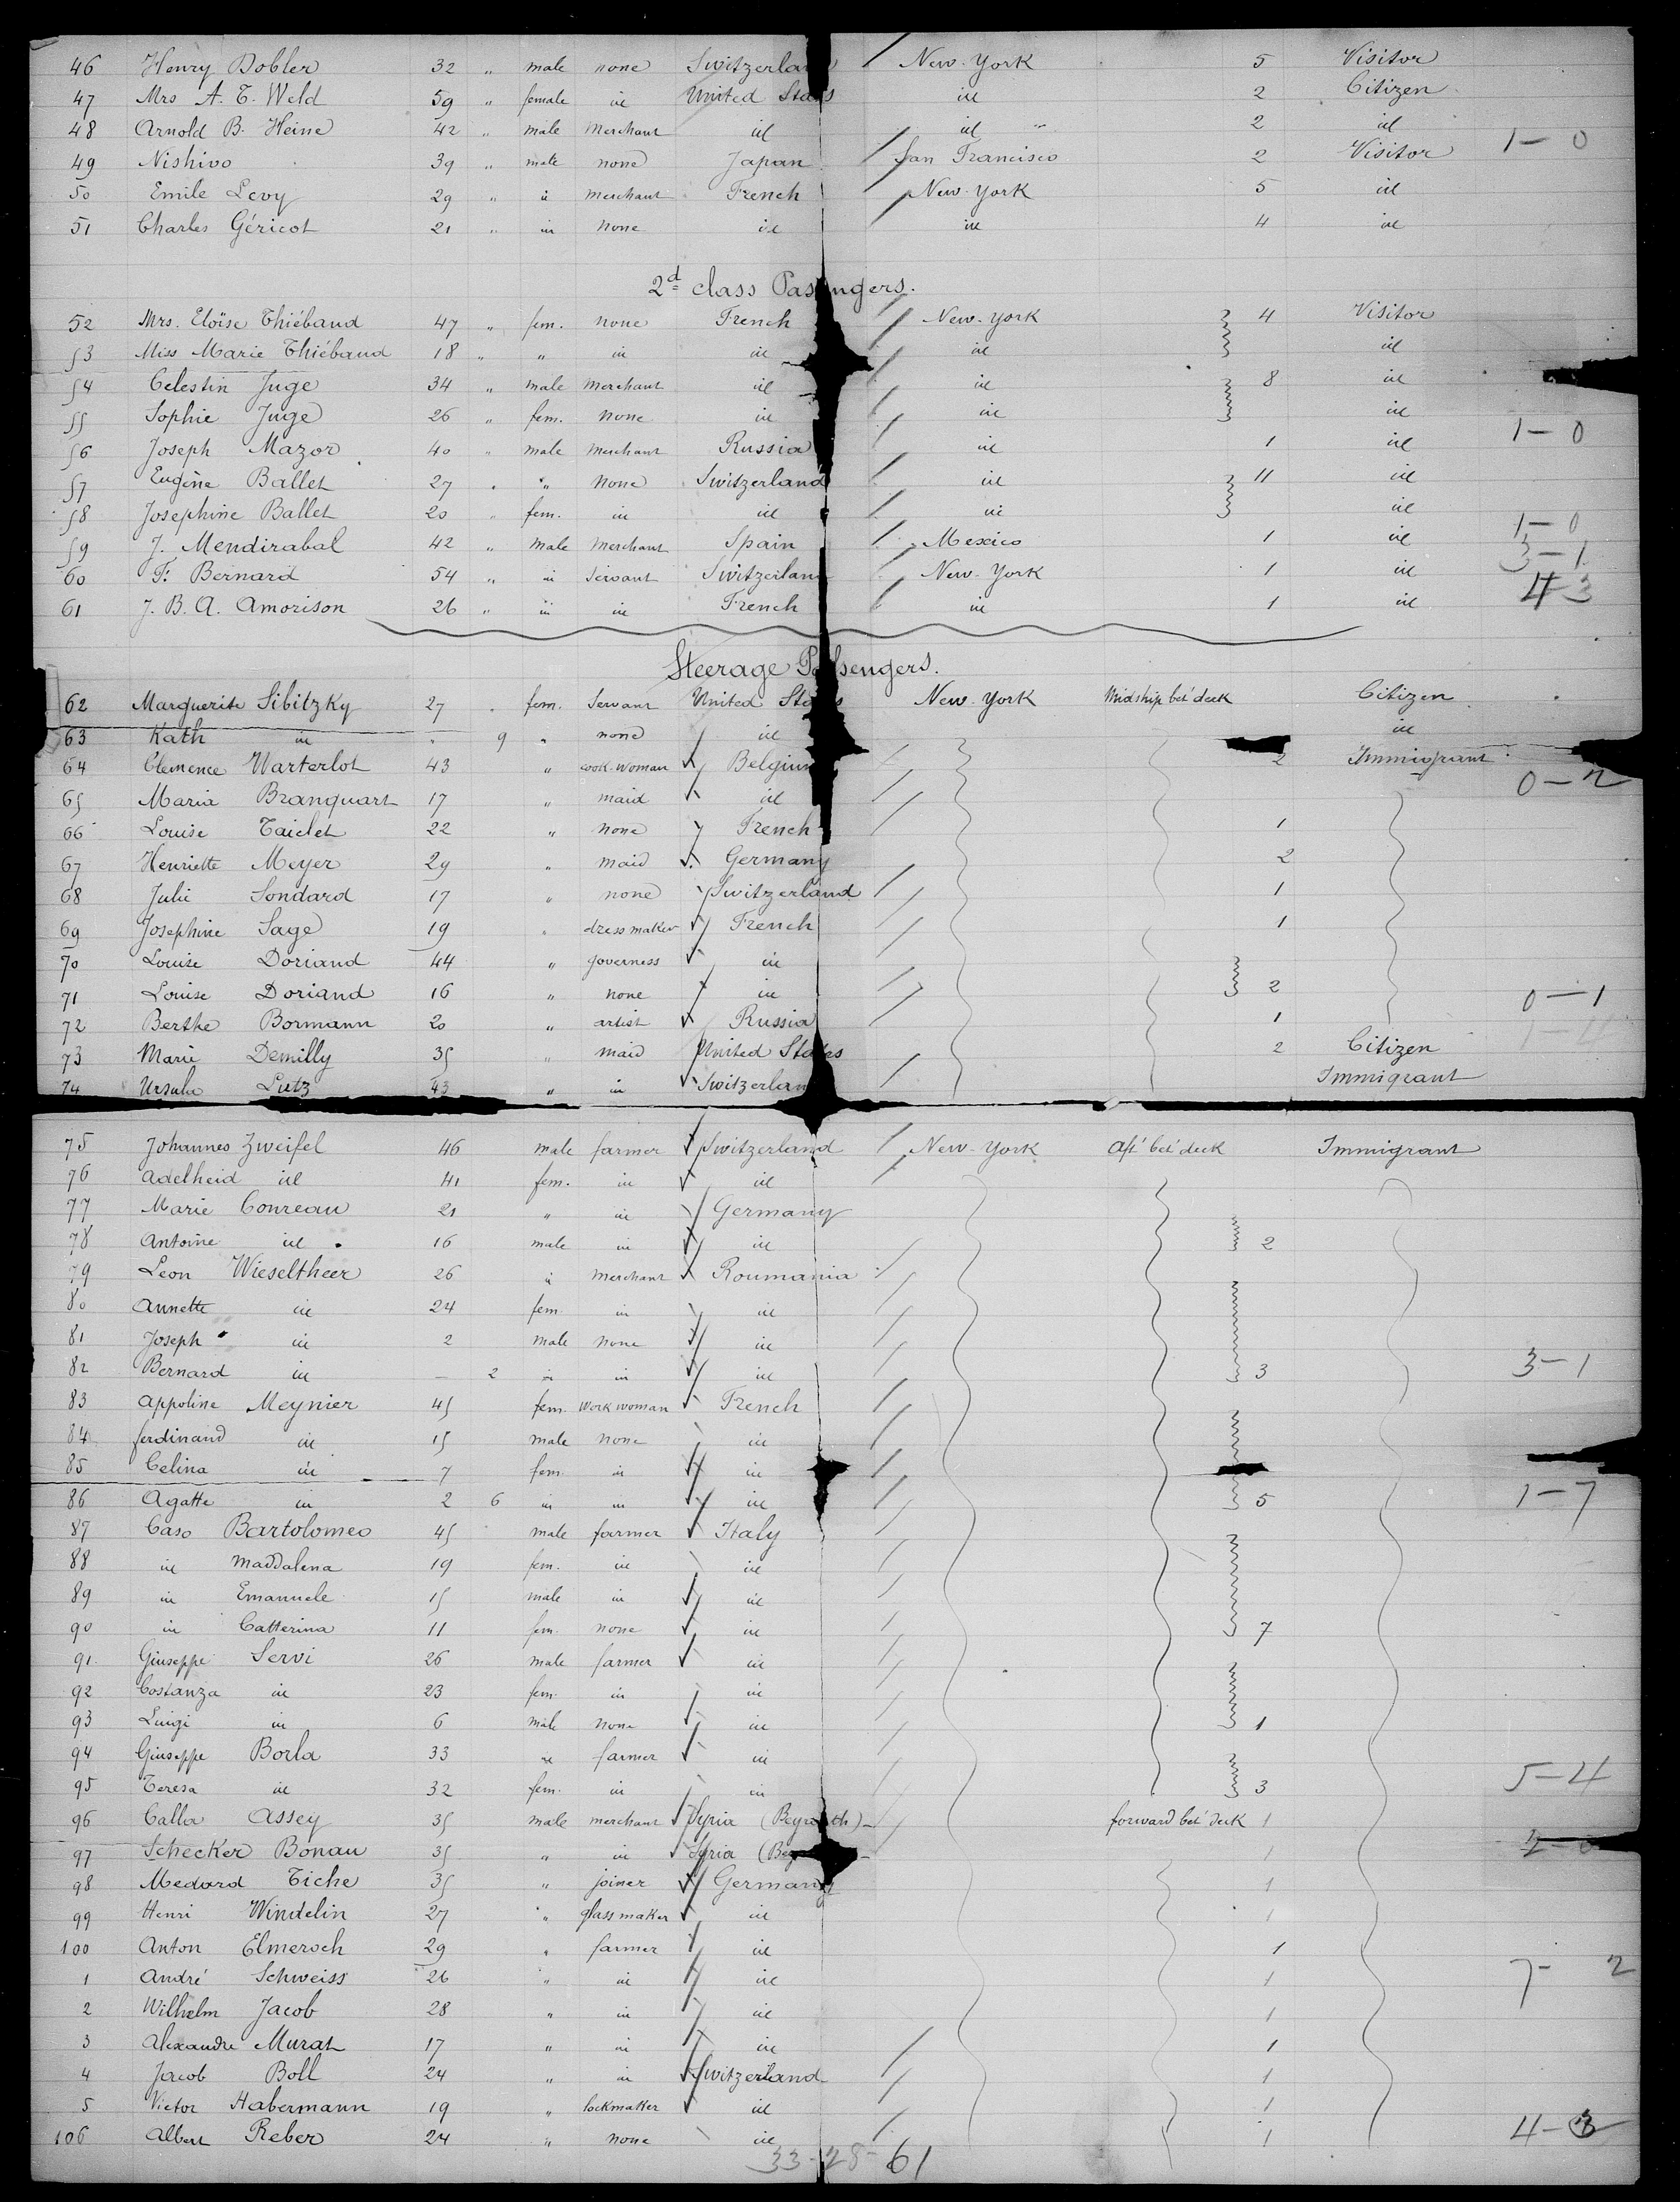 46 Henry Dobler 32 " male none Switzerland New-York 5 Visitor
47 Mrs A. T. Weld 59 " female id United States id 2 Citizen
48 Arnold B. Heine 42 " male Merchant id id " 2 id
49 Nishivo 39 " male none Japan San Francisco 2 Visitor 1-0
50 Emile Levy 29 " id merchant French New-York 5 id
51 Charles Géricot 21 " id none id id 4 id
2d class Passengers.
52 Mrs. Eloïse Thiébaud 47 " fem. none French New-York 4 Visitor
53 Miss Marie Thiébaud 18 " " id id id id
54 Celestin Juge 34 " male Merchant id id 8 id
55 Sophie Juge 26 " fem. none id id id
56 Joseph Mazor 40 " male Merchant Russia id 1 id 1-0
57 Eugène Ballet 27 " " none Switzerland id 11 id
58 Josephine Ballet 20 " fem. id id id id
59 J. Mendirabal 42 " male Merchant Spain Mexico 1 id 1-0
60 F. Bernard 54 " id Servant Switzerland New-York 1 id 3-1
61 J. B. A. Amorison 26 " id id French id 1 id 4-3
Steerage Passengers.
62 Marguerite Sibitzky 27 fem. Servant United States New-York Midship bet' deck Citizen
63 Kath id " 9 " none id id
64 Clemence Warterlot 43 " cook-woman Belgium 2 Immigrant
65 Maria Branquart 17 " maid id 0-2
66 Louise Taiclet 22 " none French 1
67 Henriette Meyer 29 " maid Germany 2
68 Julie Sondard 17 " none Switzerland 1
69 Josephine Sage 19 " dressmaker French 1
70 Louise Doriand 44 " governess id
71 Louise Doriand 16 " none id 2 0-1
72 Berthe Bormann 20 " artist Russia 1 1-4
73 Marie Demilly 35 " maid United States 2 Citizen
74 Ursula Lutz 43 " id Switzerland Immigrant
75 Johannes Zweifel 46 male farmer Switzerland New-York Aft' bet' deck Immigrant
76 Adelheid id 41 fem. id id
77 Marie Conreau 21 " id Germany
78 Antoine id 16 male id id 2
79 Leon Wieseltheer 26 id merchant Roumania
80 Annette id 24 fem. id id
81 Joseph id 2 male none id
82 Bernard id — 2 id id id 3 3-1
83 Appoline Meynier 45 fem. work woman French
84 ferdinand id 15 male none id
85 Celina id 7 fem. id id
86 Agatte id 2 6 id id id 5 1-7
87 Caso Bartolomeo 45 male farmer Italy
88 id Maddalena 19 fem. id id
89 id Emanuele 15 male id id
90 id Catterina 11 fem. none id 7
91 Giuseppe Servi 26 male farmer id
92 Costanza id 23 fem. id id
93 Luigi id 6 male none id 1
94 Giuseppe Borla 33 id farmer id
95 Teresa id 32 fem. id id 3 5-4
96 Calla Assey 35 male merchant Syria (Beyrouth) forward bet' deck 1
97 Schecker Bonau 35 " id Syria 1 2-0
98 Medard Tiche 35 " joiner Germany 1
99 Henri Windelin 27 " glass maker id 1
100 Anton Elmeroch 29 " farmer id 1
1 André Schweiss 26 " id id 1 7-2
2 Wilhelm Jacob 28 " id id 1
3 Alexandre Murat 17 " id id 1
4 Jacob Boll 24 " id Switzerland 1
5 Victor Habermann 19 " lockmaker id 1
106 Albert Reber 24 " none id 1 4-3
33-28-61